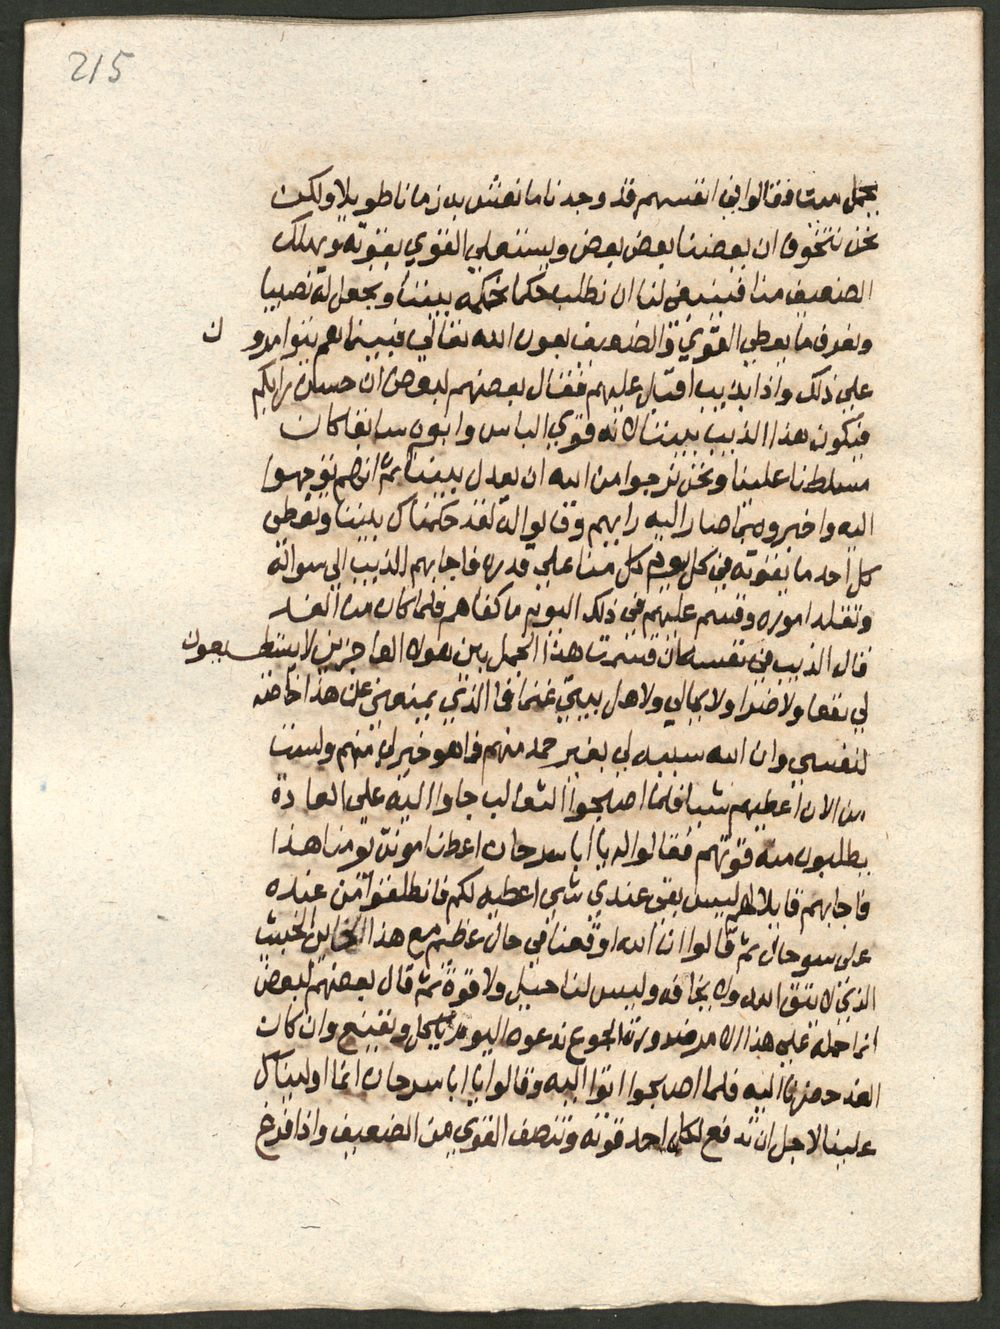 215
بجمل ميت فقالوا في انفسهم قد وجدنا ما نعتش به زمانا طويلا ولكن
نحن نتخوف ان بعضنا بعض بعض ويستعلي القوي بقوته ويهلك
الضعيف منا فينبغي لنا ان نطلب حكما نحكمه بيننا ونجعل له نصيبا
ونعرف ما يعطي القوي والضعيف بعون الله تعالي فبينما هم يتوامرون
علي ذلك واذا بذيب اقبل عليهم فقال بعضهم لبعض ان حسن برايكم
فيكون هذا الذيب بيننا لانه قوي الباس وابوه سابقا كان
مسلطنا علينا ونحن نرجوا من الله ان يعدل بيننا ثم انهم توجهوا
اليه واخبروه بما صار اليه رايهم وقالوا له لقد حكمناك بيننا وتعطي
كل احد ما يقوته في كل يوم كل منا علي قدره فاجابهم الذيب الي سواله
وتقلد اموره وقسم عليهم في ذلك اليوم ما كفاهم فلما كان من الغد
قال الذيب في نفسه ان قسمت هذا الجمل بين هولا العاجزين لا يستطيعون
لي نفعا ولا ضرا ولا بمالي ولا هل بيتي غنما فما الذي يمنعني عن هذا خاصه
لنفسي وان الله سببه لي بغير حمد منهم فما هو خير لي منهم ولست
من الان اعطيهم شيا فلما اصبحوا الثعالب جاوا اليه علي العادة
يطلبون منه قوتهم فقالوا له يا ابا سرحان اعطنا مونة يومنا هذا
فاجابهم قايلا لهم ليس بقي عندي شي اعطيه لكم فانطلقوا من عنده
علي سو حال ثم قالوا ان الله اوقعنا في حال عظيم مع هذا الخاين الخبيث
الذي لا يتق الله ولا يخافه وليس لنا حيل ولا قوة ثم قال بعضهم لبعض
انما حمله علي هذا الامر ضرورة الجوع ندعوه اليوم ياكل ويقنع وان كان
الغد حضرنا اليه فلما اصبحوا اتوا اليه وقالوا يا ابا سرحان انما اوليناك
علينا لاجل ان تدفع لكل احد قوته وتنصف القوي من الضعيف واذا فرغ